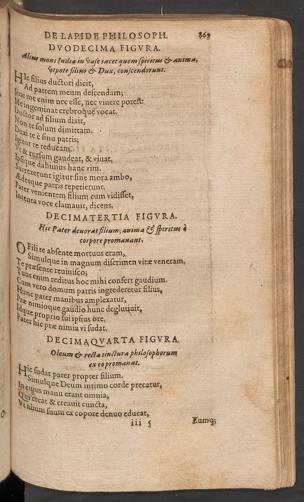 DE LAPIDE PHILOSOPH. 869
DVODECIMA FIGVRA.
Alius mons Indiæ in vase iacet quem spiritus & anima,
vtpote filius & Dux, conscenderunt.
HIc filius ductori dicit,
Ad patrem meum descendam;
Sine me enim nec esse, nec viuere potest:
Me ingeminat crebroque vocat.
Ductor ad filium dixit,
Non te solum dimittam.
Duxi te è sinu patris;
te reducam:
Vt & rursum gaudeat, & viuat,
dabimus hanc vim.
Surrexerunt igitur sine mora ambo,
Ædesque patris repetierunt.
Pater venientem filium cum vidisset,
voce clamauit, dicens.
DECIMATERTIA FIGVRA.
Hic Pater deuorat filium, anima & spiritus è
corpore promanant.
O Fili te absente mortuus eram,
Simulque in magnum discrimen vitæ veneram,
Te præsente reuiuisco;
enim reditus hoc mihi confert gaudium.
Cum vero domum patris ingrederetur filius,
Hunc pater manibus amplexatur,
Præ nimioque gaudio hunc deglutiuit,
Idque proprio sui ipsius ore,
Pater hic præ nimia vi sudat.
DECIMAQVARTA FIGVRA.
Oleum & recta tinctura philosophorum
ex eo promanat.
HIc sudat pater propter filium.
Simulque Deum intimo corde precatur,
In cuius manu erant omnia,
Qui creat & creauit cuncta,
Vt filium suum ex copore denuo educat,
iii 5 Eumq;